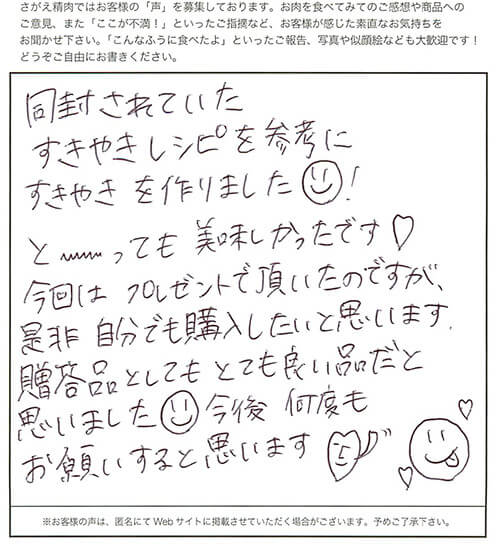 さがえ精肉ではお客様の「声」を募集しております。お肉を食べてみてのご感想や商品への
ご意見、また「ここが不満！」といったご指摘など、お客様が感じた素直なお気持ちを
お聞かせ下さい。「こんなふうに食べたよ」といったご報告、写真や似顔絵なども大歓迎です！
どうぞご自由にお書きください。
同封されていた
すきやきレシピを参考に
すきやきを作りました！
と〰っても美味しかったです♡
今回はプレゼントで頂いたのですが、
是非自分でも購入したいと思います。
贈答品としてもとても良い品だと
思いました 今後何度も
お願いすると思います
※お客様の声は、匿名にてWebサイトに掲載させていただく場合がございます。予めご了承下さい。